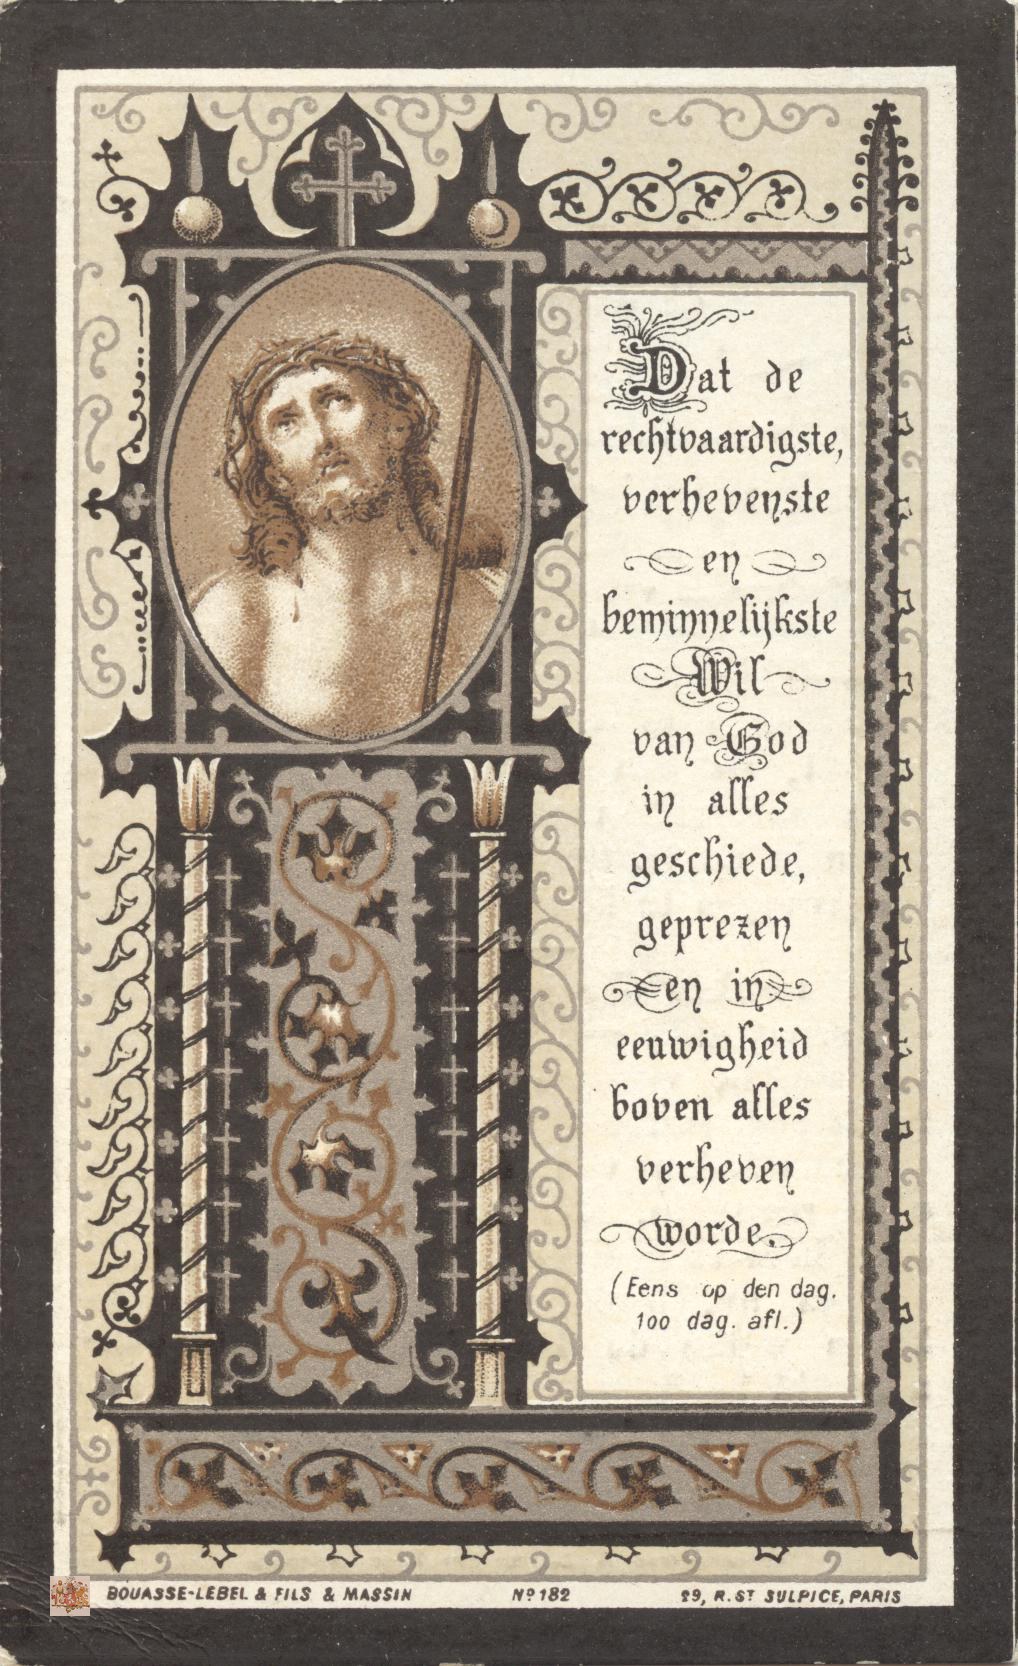 Dat de
rechtvaardigste,
verhevenste
en
beminnelijkste
Wil
van God
in alles
geschiede,
geprezen
en in
eeuwigheid
boven alles
verheven
worde.
(Eens op den dag.
100 dag. afl.)
BOUASSE-LEBEL & FILS & MASSIN Nº 182 29, R. ST SULPICE, PARIS